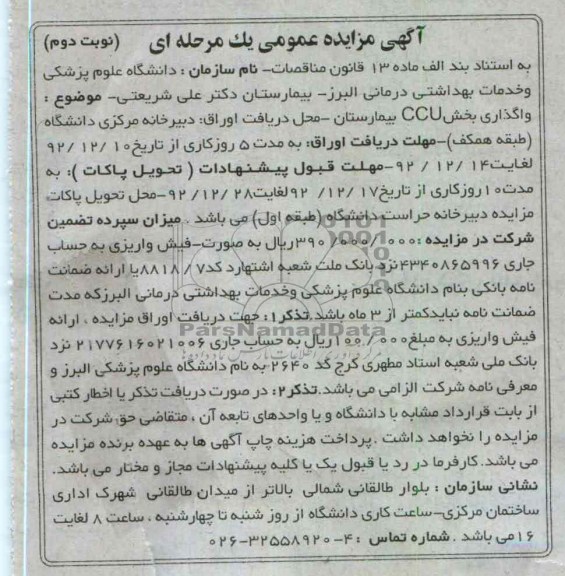 آگهی مزایده عمومی یك مرحله ای (نوبت دوم)
به استناد بند الف ماده ۱۳ قانون مناقصات- نام سازمان : دانشگاه علوم پزشکی
وخدمات بهداشتی درمانی البرز- بیمارستان دکتر علی شریعتی- موضوع :
واگذاری بخش CCU بیمارستان -محل دریافت اوراق: دبیرخانه مرکزی دانشگاه
(طبقه همکف)-مهلت دریافت اوراق: به مدت ۵ روزکاری از تاریخ ۱۰ /۱۲ /۹۲
لغایت ۱۴ /۱۲ / ۹۲-مهلت قبول پیشنهادات ( تحویل پاکات ): به
مدت ۱۰ روزکاری از تاریخ ۱۷ /۱۲/ ۹۲ لغایت ۲۸ /۱۲/ ۹۲-محل تحویل پاکات
مزایده دبیرخانه حراست دانشگاه (طبقه اول) می باشد . میزان سپرده تضمین
شرکت در مزایده : ۳۹۰/۰۰۰/۰۰۰ ریال به صورت-فیش واریزی به حساب
جاری ۴۳۴۰۸۶۵۹۹۶ نزد بانک ملت شعبه اشتهارد کد ۸۸۱۸/۷ یا ارائه ضمانت
نامه بانکی بنام دانشگاه علوم پزشکی وخدمات بهداشتی درمانی البرزکه مدت
ضمانت نامه نبایدکمتر از ۳ ماه باشد.تذکر۱: جهت دریافت اوراق مزایده ، ارائه
فیش واریزی به مبلغ ۱۰۰/۰۰۰ ریال به حساب جاری ۲۱۷۷۶۱۶۰۲۱۰۰۶ نزد
بانک ملی شعبه استاد مطهری کرج کد ۲۶۴۰-به نام دانشگاه علوم پزشکی البرز و
معرفی نامه شرکت الزامی می باشد.تذکر۲: در صورت دریافت تذکر یا اخطار کتبی
از بابت قرارداد مشابه با دانشگاه و یا واحدهای تابعه آن ، متقاضی حق شرکت در
مزایده را نخواهد داشت .پرداخت هزینه چاپ آگهی ها به عهده برنده مزایده
می باشد.کارفرما در رد یا قبول یک یا کلیه پیشنهادات مجاز و مختار می باشد.
نشانی سازمان : بلوار طالقانی شمالی بالاتر از میدان طالقانی شهرک اداری
ساختمان مرکزی-ساعت کاری دانشگاه از روز شنبه تا چهارشنبه ، ساعت ۸ لغایت
۱۶ می باشد . شماره تماس : ۴-۳۲۵۵۸۹۲۰-۰۲۶
ParsNamadData